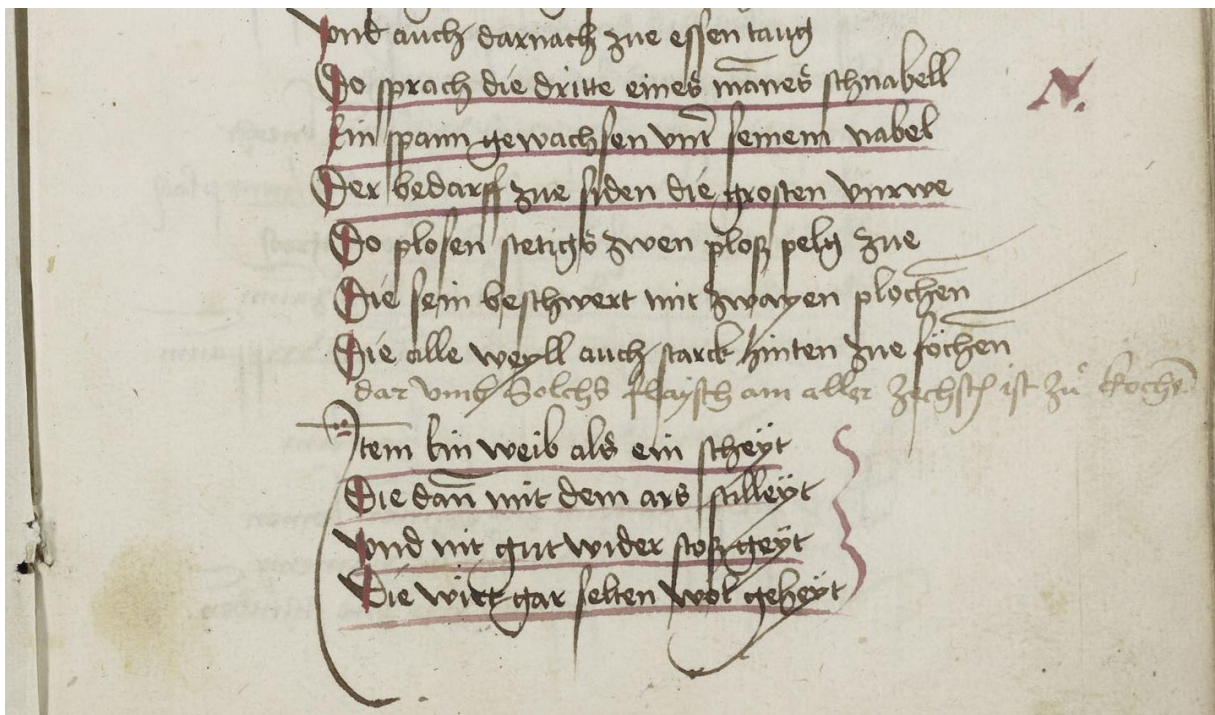 vnd auch darnach zue essen taug
Do sprach die dritte eines mānes schnabell
Ein spann gewachsen vnt̄ seinem nabel
Der bedarff zue siden die grosten vnrwe
Do plosen stetigs zwen ploß pelg zue
Die sein beschwert mit zwayen plochen̄
Die alle weyll auch starck hinten zue kochen̄
dar vmb Solchs flaysch am aller zechsten ist zu kochē
N.
Item Ein weib als ein scheÿt
Die dan̄ mit dem ars stilleÿt
Vnd nit gut wider stoß geÿt
Die wirt gar selten wol geheÿt